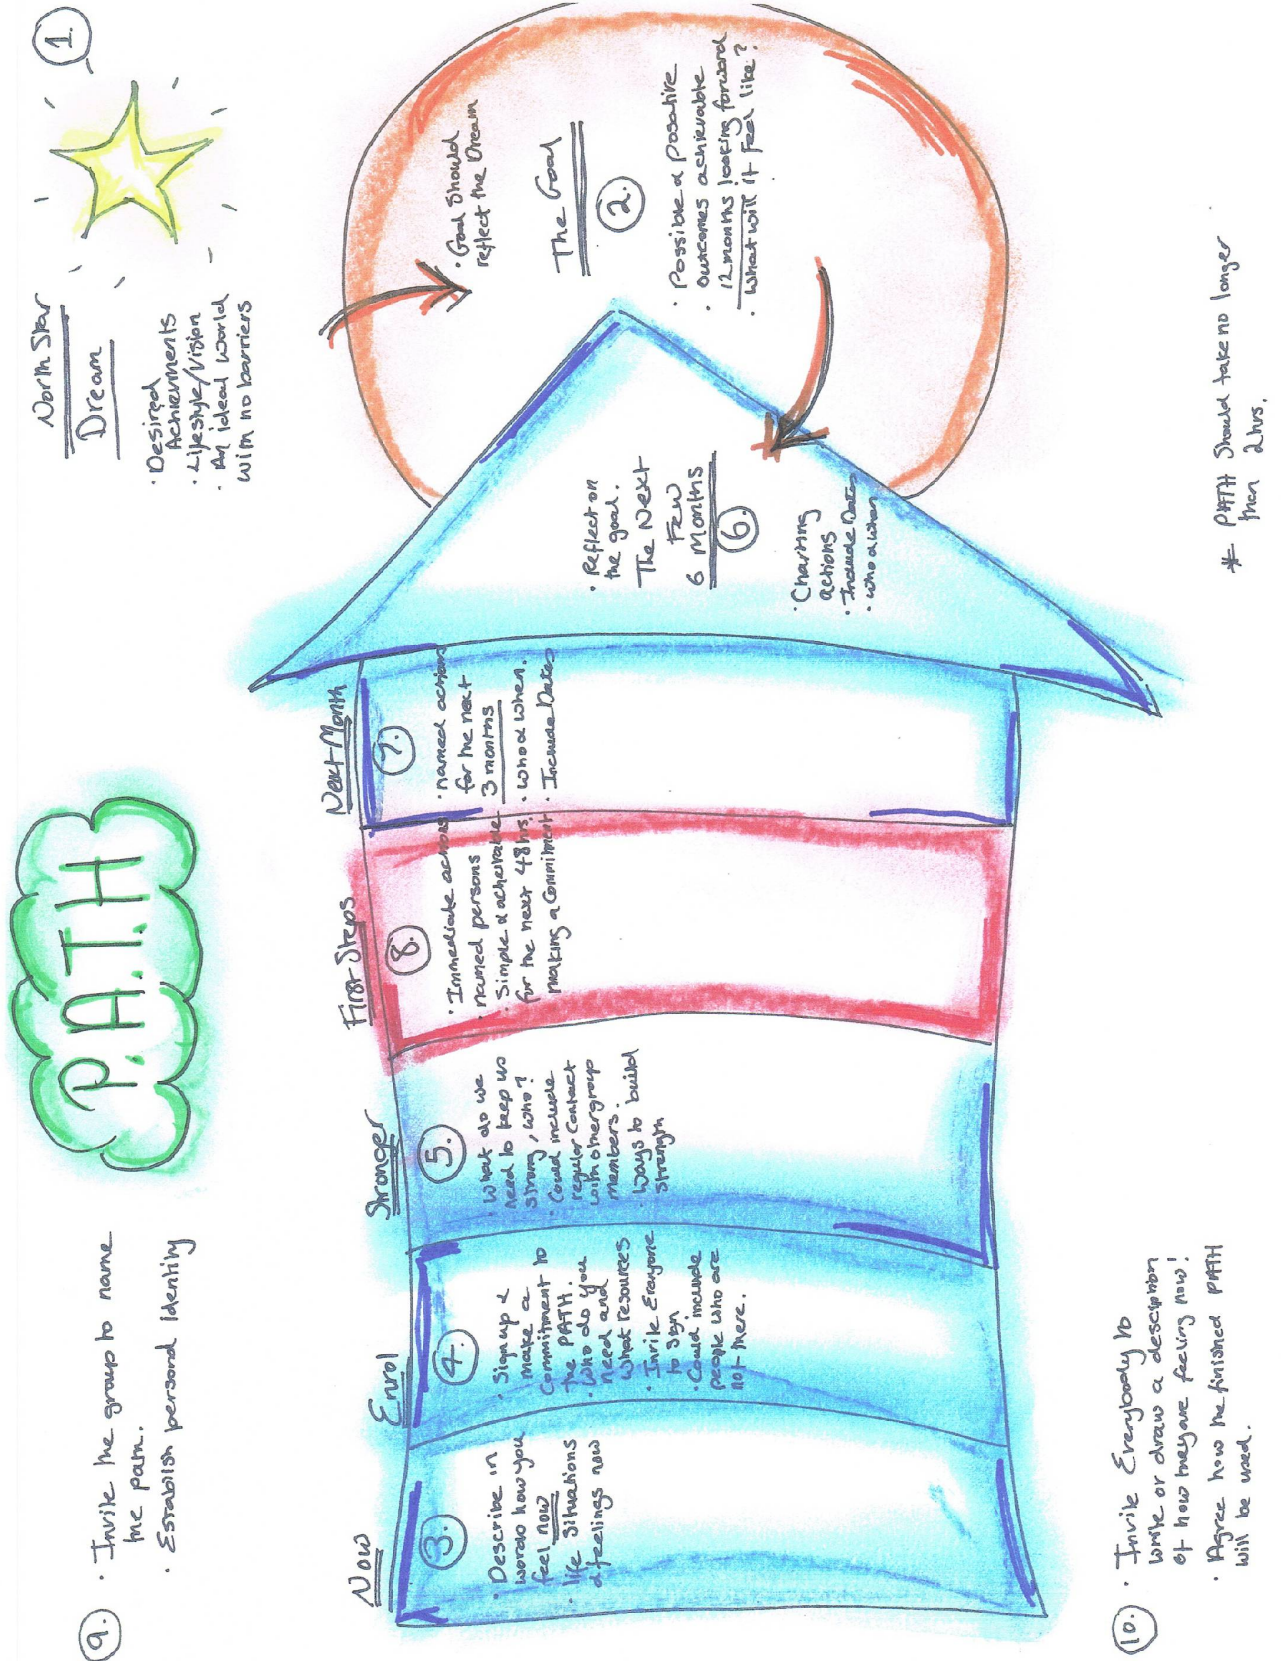 P.A.T.H
9.
· Invite the group to name
the path.
· Establish personal identity
North Star
Dream
1
· Desired
Achievments
· Lifestyle/Vision
· An ideal world
with no barriers
Now
3.
· Describe in
words how you
feel now
· life situations
& feelings now
Enrol
4.
· Sign up &
make a
commitment to
the PATH.
· Who do you
need and
what resources
· Invite Everyone
to sign
· Could include
people who are
not there.
Stronger
5.
· What do we
need to keep us
strong, who?
· Could include
regular contact
with other group
members.
· Ways to build
strength
First Steps
8.
· Immediate actions
· named persons
· Simple & acheivable
for the next 48hrs.
making a commitment
Next Month
7.
· named actions
for the next
3 months
· who & when.
· Include Dates
· Reflect on
the goal.
The Next
Few
6 Months
6.
· Charting
actions
· Include Dates
· who & when
· Goal Should
reflect the Dream
The Goal
2.
· Possible & Posative
· outcomes achievable
12 months looking forward
· what will it feel like?
10.
· Invite Everybody to
write or draw a description
of how they are feeling now!
· Agree how the finished PATH
will be used.
* PATH Should take no longer
than 2hrs.